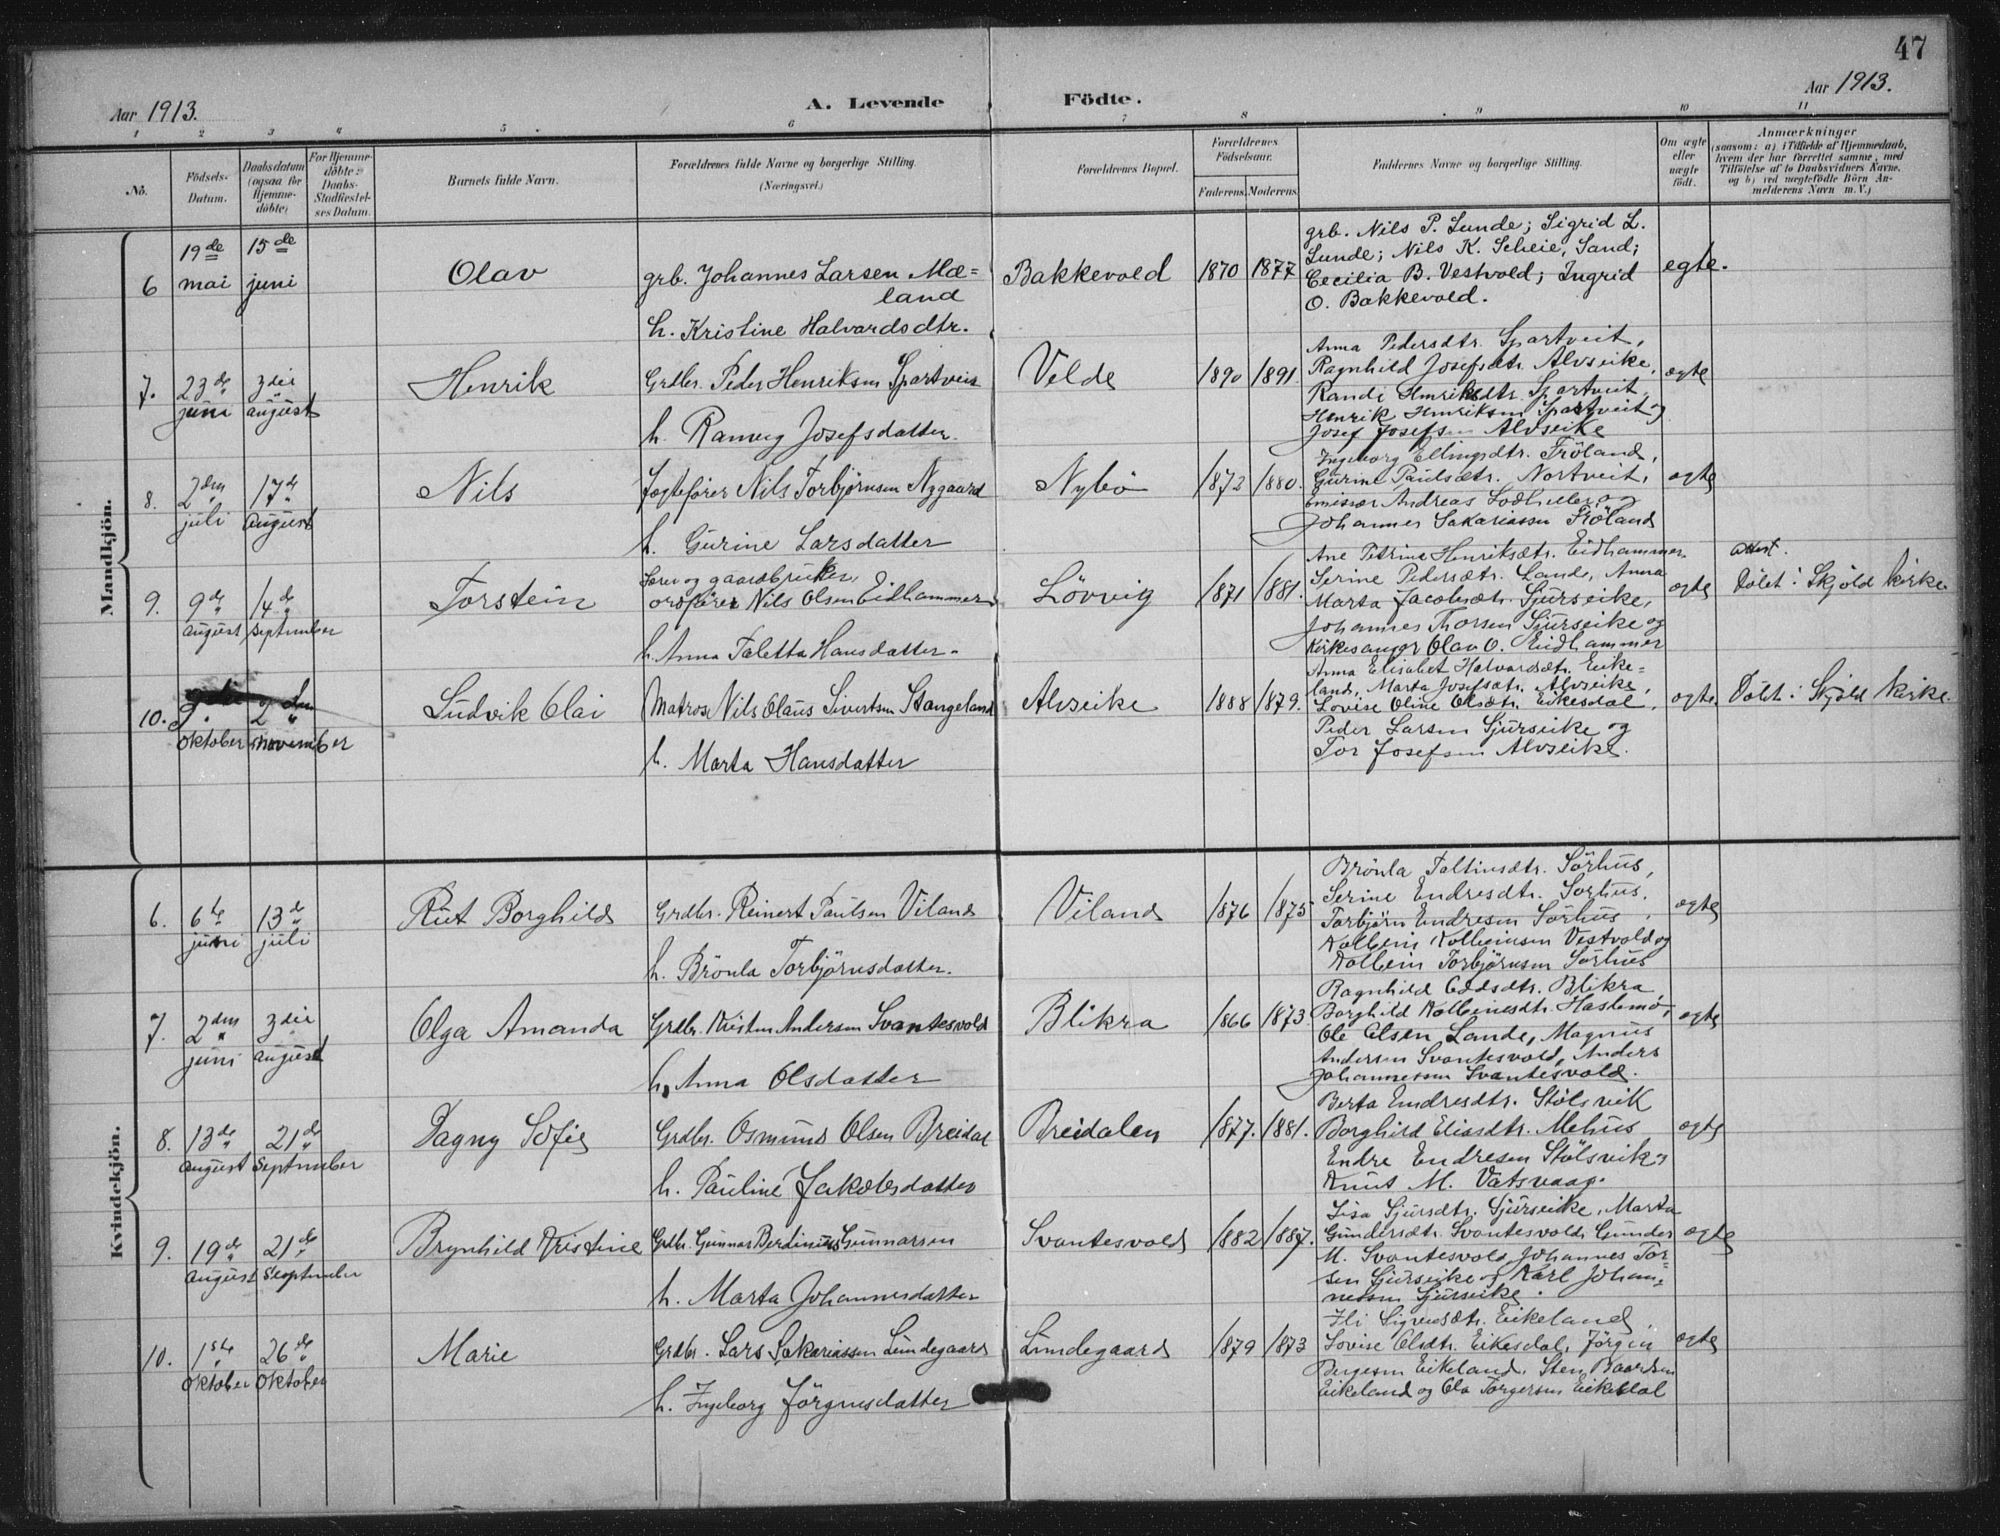 47
Aar 1913.
A. Levende Födte.
Aar 1913.
1 2 3 4 5 6 7 8 9 10 11
No.
Födsels-
Datum.
Daabsdatum
(ogsaa for
Hjemme-
döbte)
For Hjemme-
döbte:
Daabs-
Stadfæstel-
ses Datum.
Barnets fulde Navn.
Forældrenes fulde Navne og borgerlige Stilling.
(Næringsvei.)
Forældrenes Bopæl.
Forældrenes
Födselsaar.
Faderens. Moderens.
Faddernes Navne og borgerlige Stilling.
Om ægte
eller
uægte
födt.
Anmærkninger
(saasom: a) i Tilfælde af Hjemmedaab,
hvem der har forrettet samme, med
Tilföielse af to Daabsvidners Navne,
og b) ved uægtefödte Börn An-
melderens Navn m. V.)
Mandkjön.
6
19de
mai
15de
juni
Olav
grb. Johannes Larsen Mæ=
land
h. Kristine Halvardsdtr.
Bakkevold
1870
1877
grb. Nils P. Lunde; Sigrid L.
Lunde; Nils K. Scheie, Sand;
Cecilia B. Vestvold; Ingrid
O. Bakkevold.
egte.
7.
23de
juni
3die
august
Henrik
Grdbr. Peder Henriksen Spartveit
h. Ranveig Josefsdatter.
Velde
1890
1891.
Anna Pedersdtr. Spartveit,
Ragnhild Josefsdtr. Alvseike,
Randi Henriksdtr. Spartveit,
Henrik Henriksen Spartveit og
Josef Josefsen Alvseike
ægte
8.
2den
juli
17de
august
Nils
Jægtefører Nils Torbjørnsen Nygaard
h. Gurine Larsdatter
Nybö
1872
1880.
Ingeborg Ellingsdtr. Fröland,
Gurine Paulsdtr. Nortveit,
Emissær Andreas og
Johannes Sakariassen Fröland
ægte
9.
9de
august
14de
september
Torstein
og gaardbruker
ordfører Nils Olsen Eidhammer
h. Anna Taletta Hansdatter.
Lövvig
1871
1881.
Ane Petrine Henriksdtr. Eidhammer
Serine Pedersdtr. Lande, Anna
Marta Jacobsdtr. Sjurseike,
Johannes Thorsen Sjurseike og
Kirkesanger Olav O. Eidhammer
ægte
attest.
Döbt i Skjold kirke
10.
9
oktober
2den
november
Ludvik Olai
Matros Nils Olaus Sivertsen Stangeland
h. Marta Hansdatter
Alvseike
1888
1879.
Anna Elisabet Halvardsdtr. Eike=
land, Marta Josefsdtr. Alvseike,
Lovise Oline Olsdtr. Eikesdal,
Peder Larsen Sjurseike og
Tor Josefsen Alvseike.
ægte.
Döbt i Skjold kirke.
Kvindekjön.
6.
6te
juni
13de
juli
Rut Borghild
Grdbr. Reinert Paulsen Viland
h. Brönla Torbjörnsdatter.
Viland
1876
1875
Brönla Sörhus,
Serine Endresdtr. Sörhus.
Torbjörn Endresen Sörhus,
Kolbein Kolbeinsen Vestvold og
Kolbein Torbjörnsen Sörhus
ægte
7.
2den
juni
3die
august
Olga Amanda
Grdbr. Kristen Andersen Svantesvold
h. Anna Olsdatter
Blikra
1866
1873
Ragnhild Oddsdtr. Blikra
Borghild Kolbeinsdtr. Haslemö,
Ole Olsen Lande, Magnus
Andersen Svantesvold, Anders
Johannessen Svantesvold.
ægte
8.
13de
august
21de
september
Dagny Sofie
Grdbr. Osmund Olsen Breidal
h. Pauline Jakobsdatter
Breidalen
1877.
1881.
Berta Endresdtr. Stölsvik
Borghild Eliasdtr. Mehus
Endre Endresen Stölsvik,
Knut M. Vatsvaag.
ægte
9.
19de
august
21de
September
Brynhild Kristine
Grdbr. Gunnar Berdinius Gunnarsen
h. Marta Johannesdatter
Svantesvold
1882
1887.
Lisa Sjursdtr. Sjurseike, Marta
Gundersdtr. Svantesvold, Gunder
M. Svantesvold, Johannes Tor=
sen Sjurseike og Karl Johan=
nessen Sjurseike.
ægte
10.
1ste
oktober
26de
oktober
Marie
Grdbr. Lars Sakariassen Lundegaard
h. Ingeborg Jörgensdatter
Lundegaard
1879
1873
Ili Eikeland,
Lovise Olsdtr. Eikesdal, Jörgen
Bergesen Eikeland, Sten Baardsen
Eikeland og Ola Torgersen Eikesdal
ægte